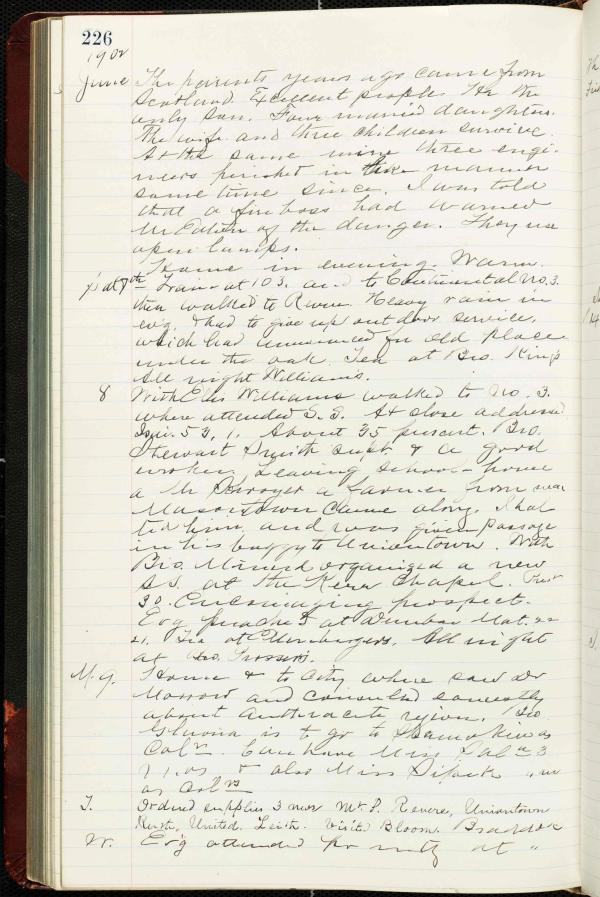 226
1902
June The parents years ago came from
Scotland Excellent people. He the
only son. Four married daughters.
The wife and three children survive.
At the same mine three engi-
neers perished in like manner
sometime since. I was told
that a fire boss had warned
of the danger. They use
open lamps.
Home in evening. Warm.
Sat 7th Train at 103. and to Continental No. 3.
then walked to Revere. Heavy rain in
ev'g. & had to give up outdoor service,
which had announced for old place
under the oak. Tea at Bro. King's
All night Williams.
8 With Williams walked to No. 3.
where attended S.S. At close addressed
Isai. 53, 1. About 35 present. Bro.
Stewart Smith Supt. & a good
worker. Leaving school-house
a Mr a farmer from near
Masontown came along. I hal
ted him and was given passage
in his buggy to Uniontown. With
Bro. organized a new
S.S. at the Chapel.
30. Encouraging prospect.
Ev'g preached at Dunbar Mat. 22
21. Tea at All night
at Bro.
M. 9. Home & to City where saw Dr
Morrow and consulted
about Anthracite region. Bro.
is to go to Shamokin as
Col'r. Can have Miss
& also Miss
as Col'rs
T. Ordered supplies 3 mos Revere, Uniontown
United. Leith. Visited Bloom. Braddock
W. Ev'g attended pr mtg at "